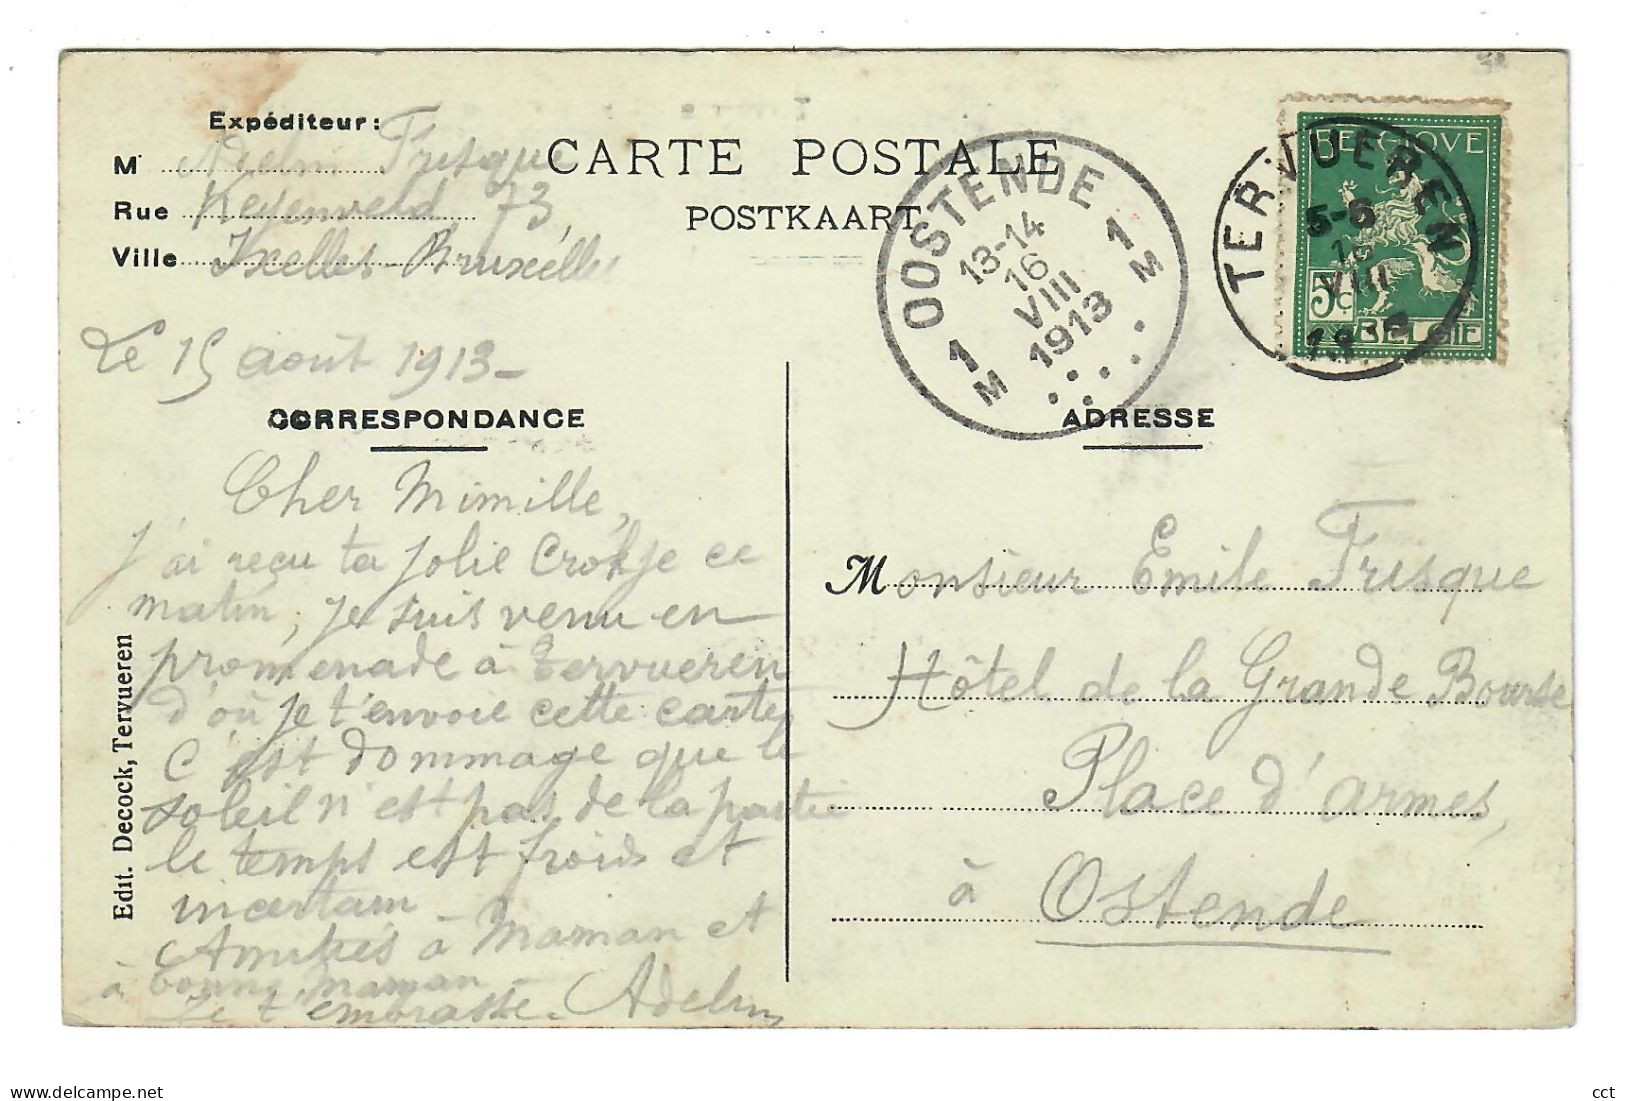 Expéditeur:
M Adelin Frisque
Rue Keyenveld 73,
Ville Ixelles-Bruxelles
CARTE POSTALE
POSTKAART
OOSTENDE
13-14
16
VIII
1913
1 M
1 M
TERVUEREN
5-6
VIII
BELGIQUE
5c
BELGIË
Le 15 août 1913-
CORRESPONDANCE
Cher Mimille,
j'ai reçu ta jolie ce
matin, je suis venu en
promenade à Tervueren
d'où je t'envoie cette carte,
C'est dommage que le
soleil n'est pas de la partie
le temps est froid et
incertain
Amitiés à Maman et
à bonne Maman
Je t'embrasse. Adelin
Edit. Decock, Tervueren
ADRESSE
Monsieur Emile Frisque
Hôtel de la Grande Bourse
Place d'armes,
à Ostende
delcampe.net
cct